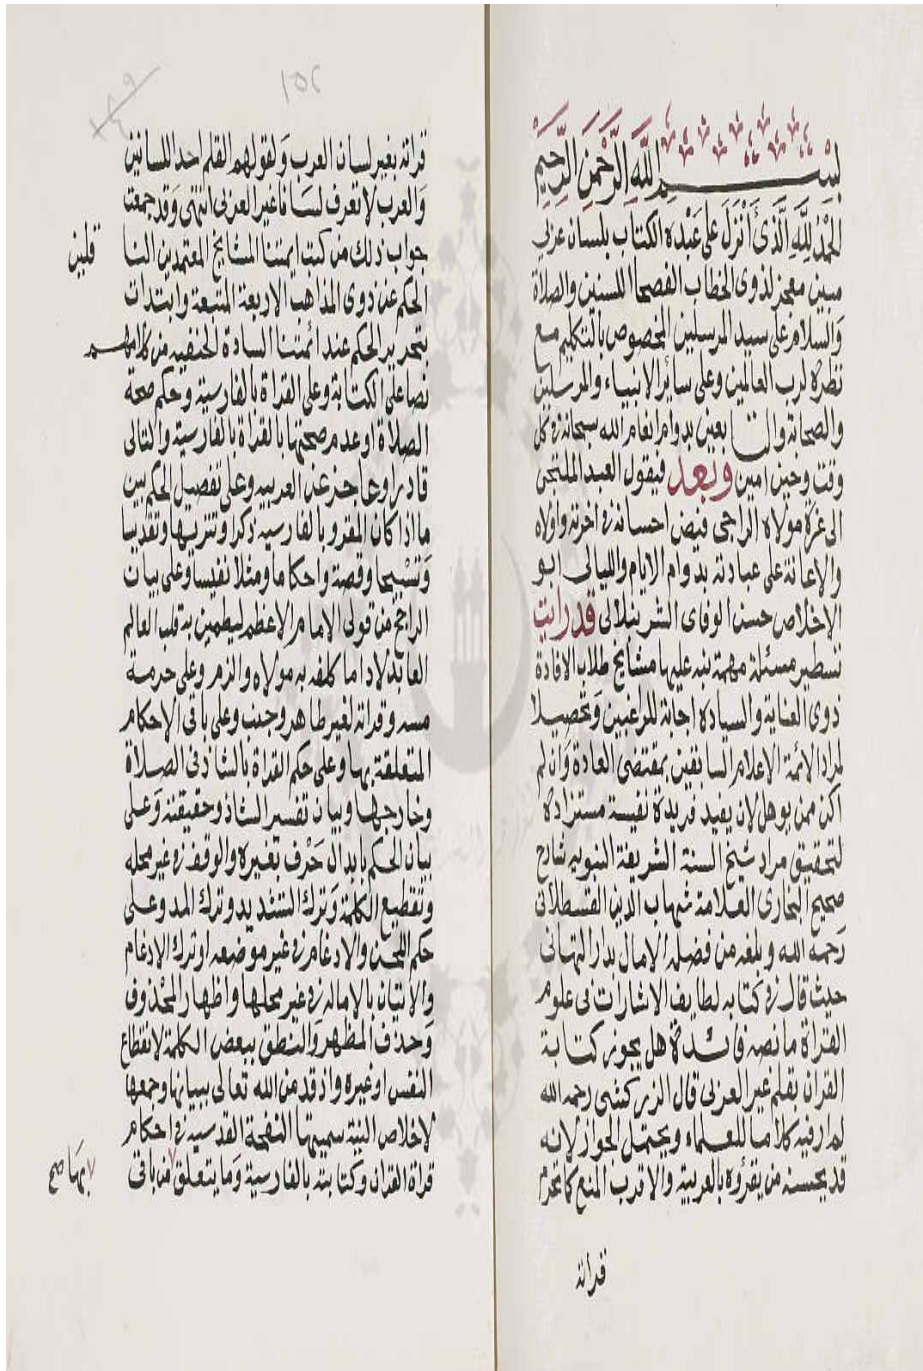 بسم الله الرحمن الرحيم
الحمد لله الذى أنزل على عبده الكتاب بلسان عربى
مبين معجز لذوى الخطاب الفصحا اللسنين والصلاة
والسلام على سيد المرسلين المخصوص بالتكليم مع
نظره لرب العالمين وعلى سائر الانبياء والمرسلين
والصحابة والتابعين بدوام انعام الله سبحانه فى كل
وقت وحين امين وبعد فيقول العبد الملتجى
الى عزة مولاه الراجى فيض احسانه فى اخرته واولاه
والاعانة على عبادته بدوام الايام والليالى ابو
الاخلاص حسن الوفاى الشرنبلالى قد رايت
تسطير مسئلة مهمة نبه عليها مشايخ طلاب الافادة
ذوى العناية والسيادة اجابة للراغبين وتحصيلا
لمراد الائمة الاعلام السابقين بمقتضى العادة وان لم
اكن ممن يوهل لان يفيد فريدة نفيسة مستزادة
لتحقيق مراد شيخ السنة الشريفة النبوية شارح
صحيح البخارى العلامة شهاب الدين القسطلانى
رحمه الله وبلغه من فضله الامال بدار التهانى
حيث قال فى كتابه لطايف الاشارات فى علوم
القراة ما نصه فائدة هل يجوز كتابة
القران بقلم غير العربى قال الزركشى رحمه الله
لم ار فيه كلاما للعلماء ويحتمل الجواز لانه
قد يحسنه من يقروه بالعربية والاقرب المنع كما تحرم
قراته
١٥٢
قراته بغير لسان العرب ولقولهم القلم احد اللسانين
والعرب لا تعرف لسانا غير العربى انتهى وقد جمعت
جواب ذلك من كتب ايمتنا المشايخ المعتمدين
الحكم عن ذوى المذاهب الاربعة المتبعة وابتدات
بتحرير الحكم عند ائمتنا السادة الحنفيه من كلامهم
نصا على الكتابة وعلى القراة بالفارسية وحكم صحة
الصلاة او عدم صحتها بالقراة بالفارسية والتالى
قادر او عاجز عن العربيه وعلى تفصيل الحكم بين
ما اذا كان المقرو بالفارسيه ذكرا وتنزيها وتقديسا
وتسبيحا وقصة واحكاما ومثلا نفيسا وعلى بيان
الراجح من قولى الامام الاعظم ليطمين به قلب العالم
العابد لاداما كلفه به مولاه والزم وعلى حرمة
مسه وقراته لغير طاهر وجنب وعلى باقى الاحكام
المتعلقة بها وعلى حكم القراة بالشاذ فى الصلاة
وخارجها وبيان تفسير الشاذ وحقيقته وعلى
بيان الحكم بابدال حرف بغيره والوقف فى غير محله
وتقطيع الكلمة وترك التشديد وترك المد وعلى
حكم اللحن والادغام فى غير موضعه او ترك الادغام
والاتيان بالاماله فى غير محلها واظهار المحذوف
وحذف المظهر والنطق ببعض الكلمة لانقطاع
النفس او غيره واذ قد من الله تعالى ببيانها وجمعها
لاخلاص النية سميتها النفحة القدسيه فى احكام
قراة القران وكتابته بالفارسية وما يتعلق من باقى
بها صح